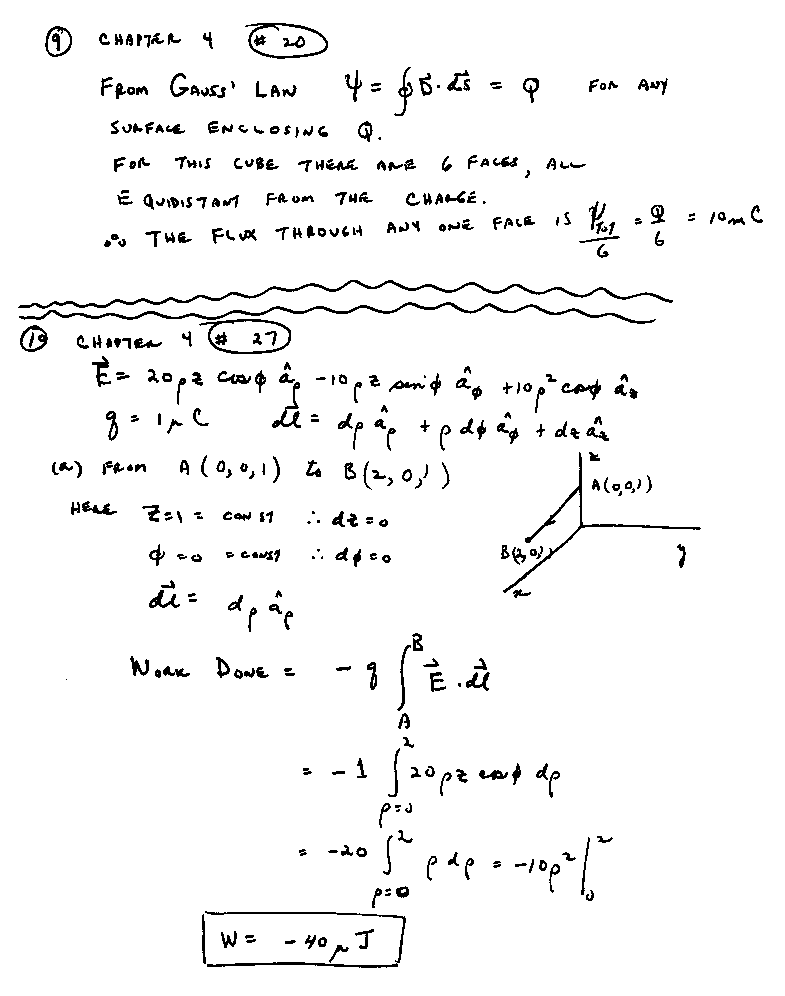 9 CHAPTER 4 # 20
FROM GAUSS' LAW ψ = ∮ D⃗ · d⃗s = Q FOR ANY
SURFACE ENCLOSING Q.
FOR THIS CUBE THERE ARE 6 FACES, ALL
EQUIDISTANT FROM THE CHARGE.
∴ THE FLUX THROUGH ANY ONE FACE IS ψ_TOT/6 = Q/6 = 10 m C
10 CHAPTER 4 # 27
E⃗ = 20ρz cosφ â_ρ − 10ρz sinφ â_φ + 10ρ² cosφ â_z
q = 1 μC d⃗l = dρ â_ρ + ρ dφ â_φ + dz â_z
(a) FROM A(0,0,1) to B(2,0,1)
HERE Z=1 = CONST ∴ dz=0
φ=0 = CONST ∴ dφ=0
d⃗l = dρ â_ρ
z
A(0,0,1)
B(2,0,1)
y
x
WORK DONE = −q ∫_A^B E⃗ · d⃗l
= −1 ∫_{ρ=0}^2 20ρz cosφ dρ
= −20 ∫_{ρ=0}^2 ρ dρ = −10ρ² |_0^2
W = −40 μJ